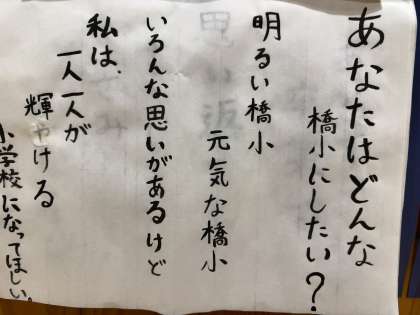 あなたはどんな
橋小にしたい？
明るい橋小
元気な橋小
いろんな思いがあるけど
私は、
一人一人が
輝やける
小学校になってほしい。